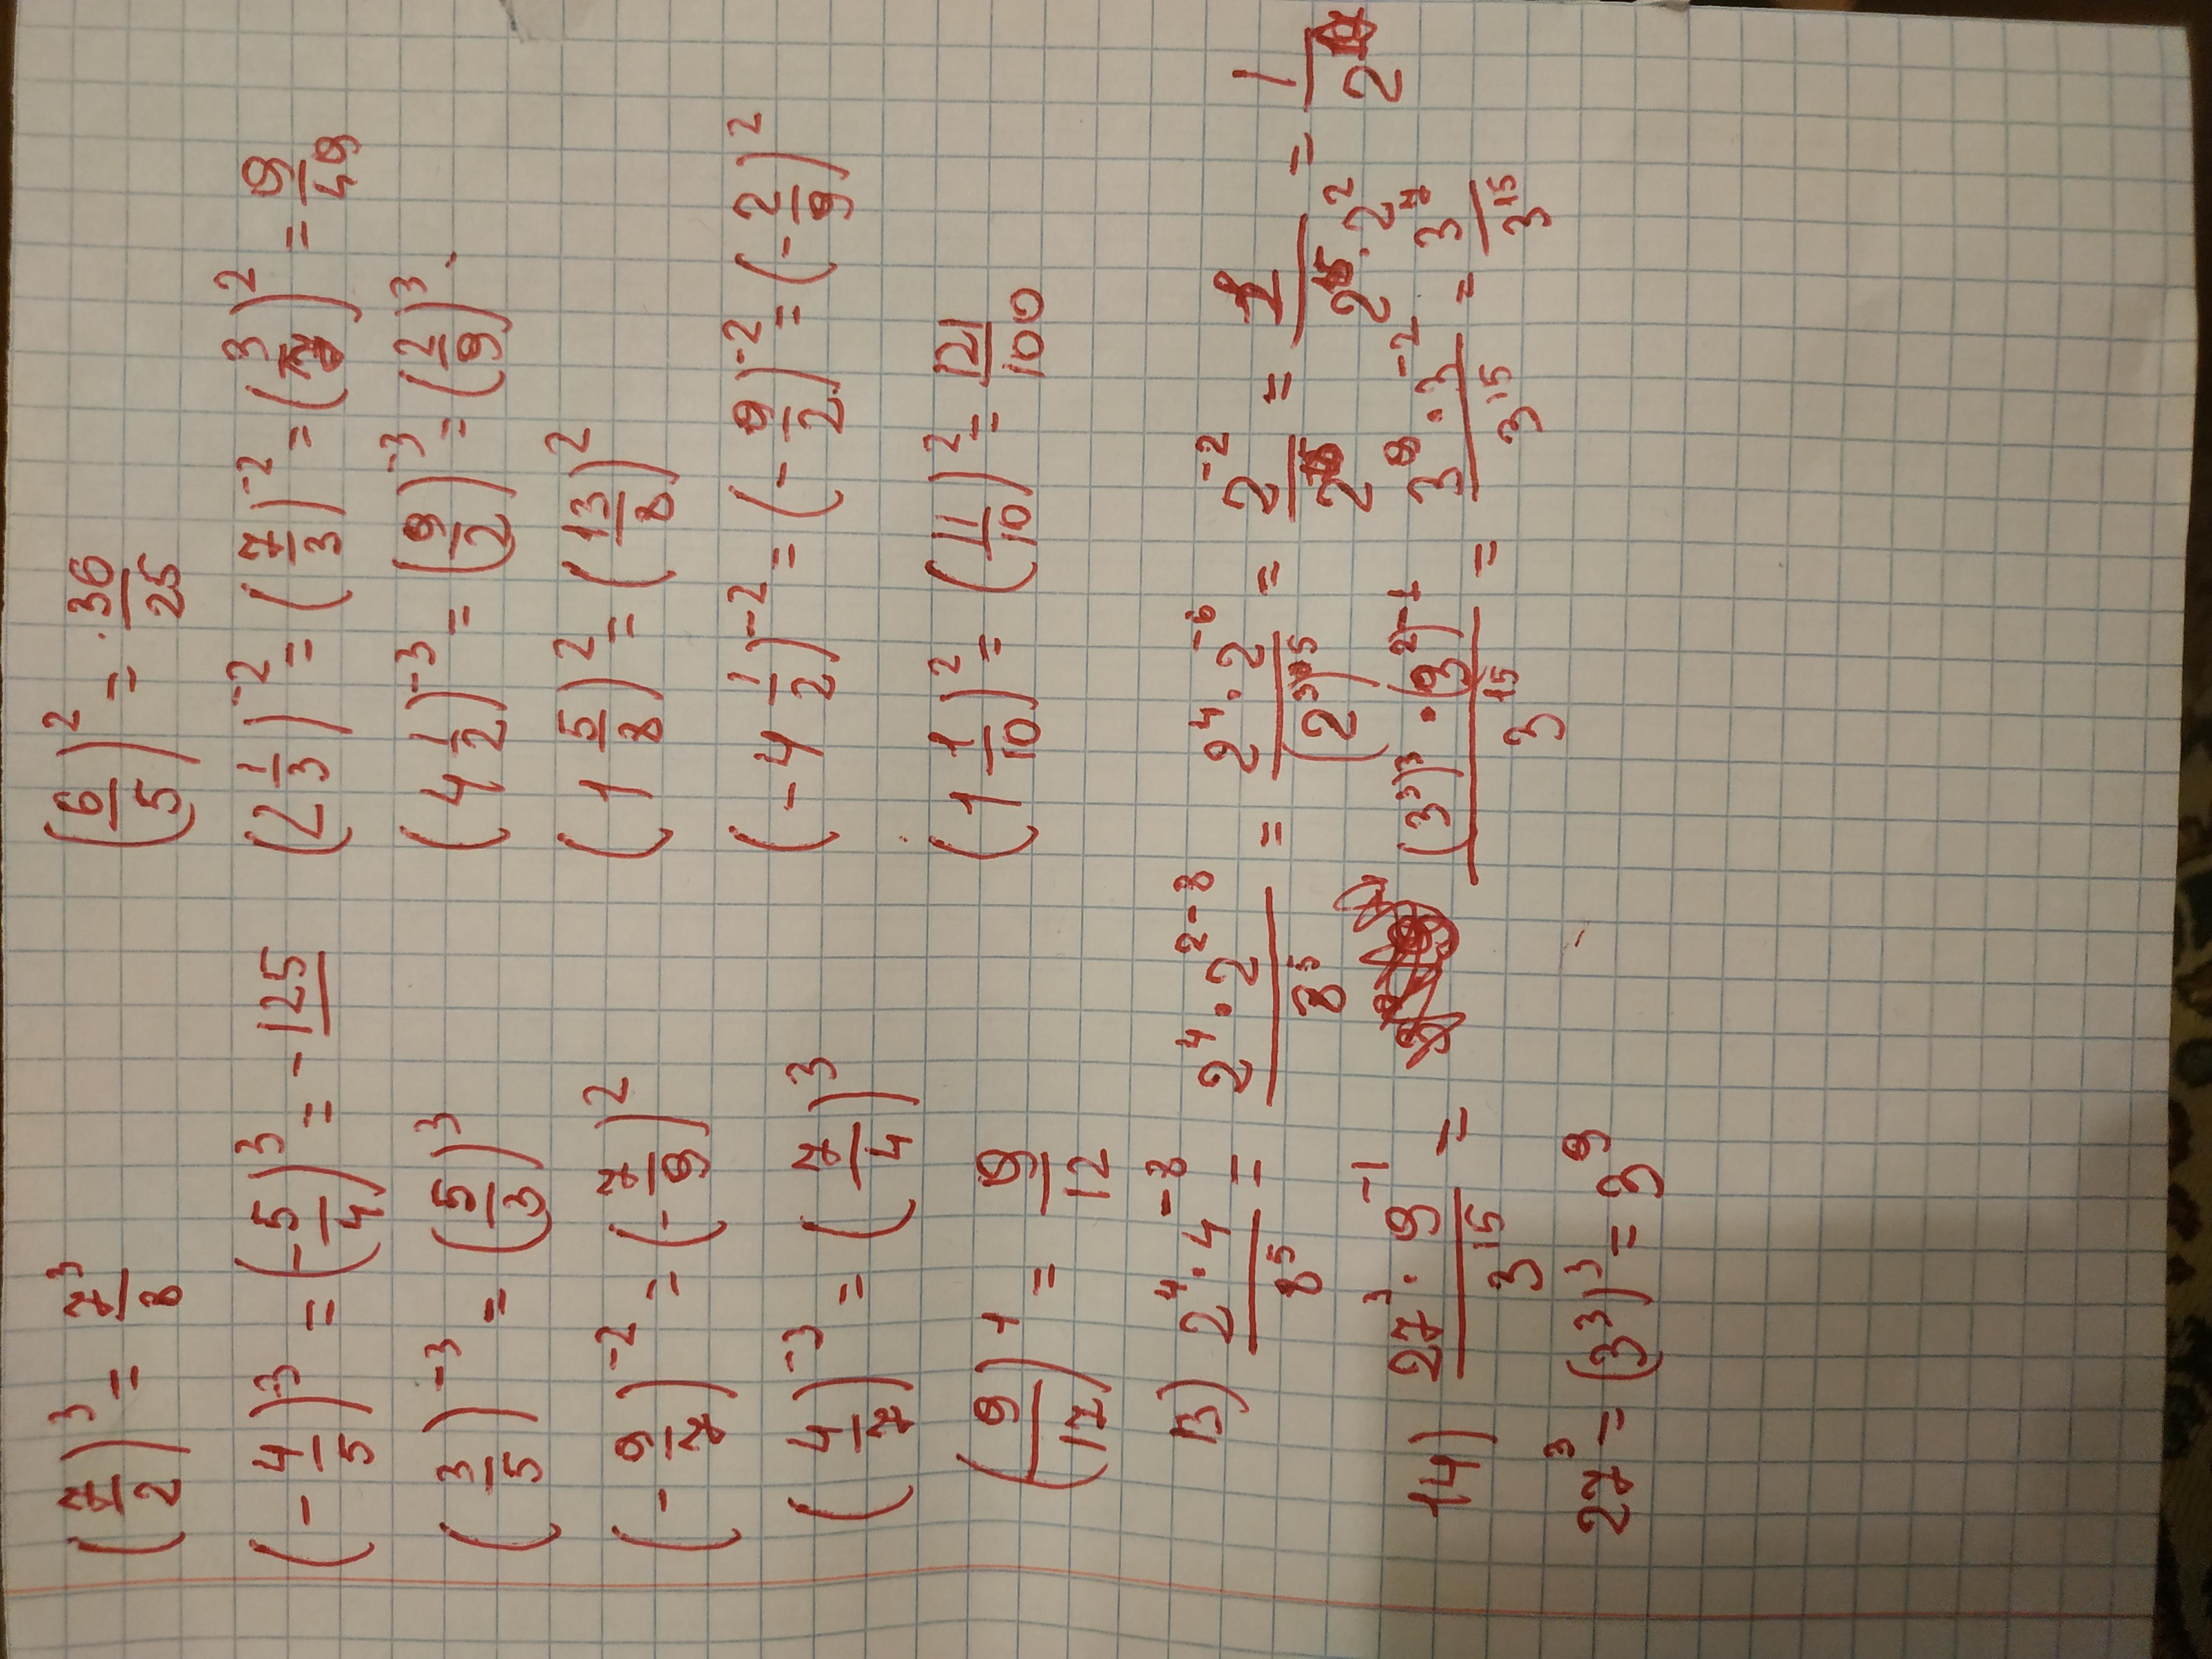 (7/2)³ = 7³/8    (6/5)² = 36/25
(-4/5)³ = (-5/4)³ = -125    (2 1/3)⁻² = (7/3)⁻² = (3/7)² = 9/49
(3/5)⁻³ = (5/3)³    (4 1/2)⁻³ = (9/2)⁻³ = (2/9)³
(-9/7)⁻² = (-7/9)²    (1 5/8)² = (13/8)²
(4/7)⁻³ = (7/4)³    (-4 1/2)⁻² = (-9/2)⁻² = (-2/9)²
(9/12)¹ = 9/12    (1 1/10)² = (11/10)² = 121/100
13) 2⁴·4⁻³/8⁵ = 2⁴·2²⁻³/8⁵ = 2⁴·2⁻⁶/(2³)⁵ = 2⁻²/2¹⁵ = 1/2¹⁵·2² = 1/2
14) 27³·9⁻¹/3¹⁵ = (3³)³·(3²)⁻¹/3¹⁵ = 3⁹·3⁻²/3¹⁵ = 3⁷/3¹⁵
27³ = (3³)³ = 3⁹